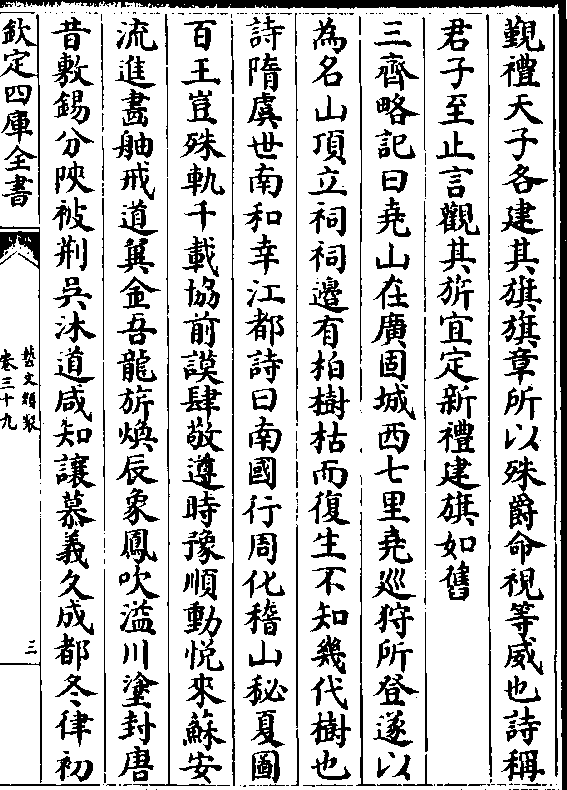 覲禮天子各建其旗旗章所以殊爵命視等威也詩稱
君子至止言觀其旂宜定新禮建旗如舊
三齊略記曰堯山在廣固城西七里堯巡狩所登遂以
為名山頂立祠祠邊有柏樹枯而復生不知幾代樹也
詩隋虞世南和幸江都詩曰南國行周化稽山秘夏圖
百王豈殊軌千載協前謨肆敬遵時豫順動悅來蘇安
流進畵舳戒道翼金吾龍旂煥辰象鳳吹溢川塗封唐
昔敷錫分陜被荆吳沐道咸知讓慕義久成都冬律初
欽定四庫全書
藝文類聚
卷三十九
三